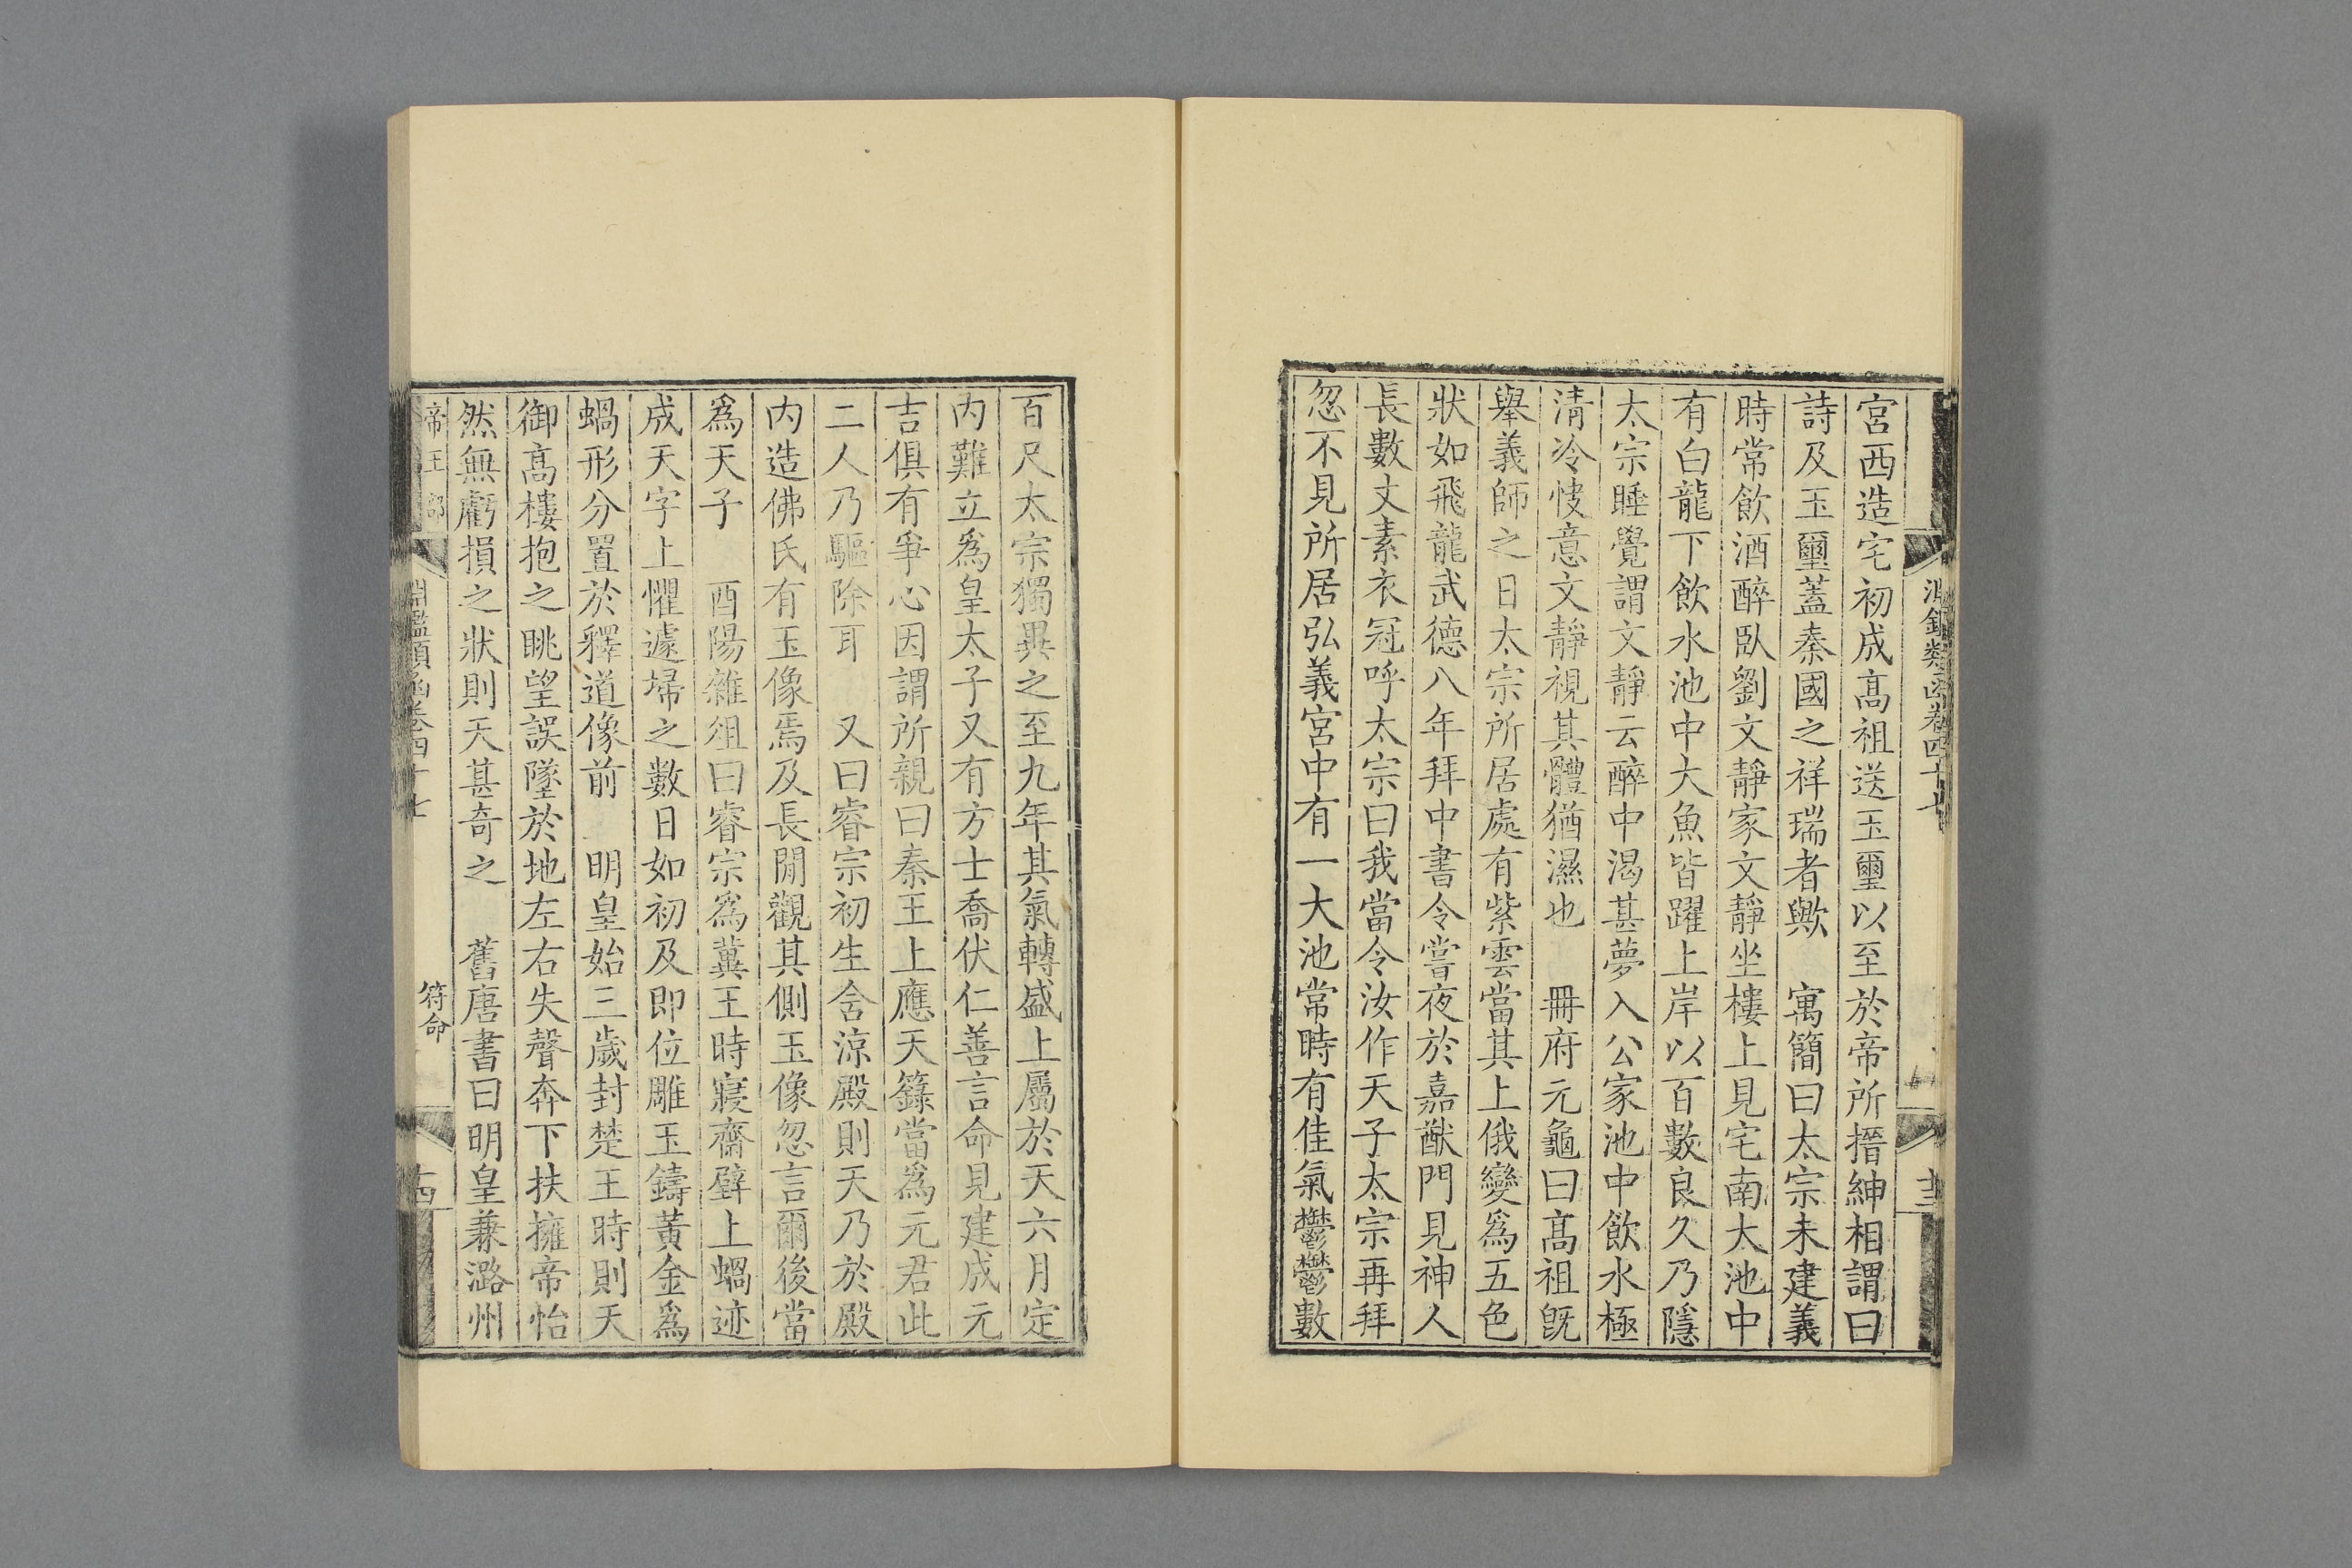 淵鑑類函卷四十七
十三
宮西造宅初成髙祖送玉璽以至於帝所搢紳相謂曰
詩及玉璽蓋秦國之祥瑞者歟　寓簡曰太宗未建義
時常飲酒醉臥劉文靜家文靜坐樓上見宅南大池中
有白龍下飲水池中大魚皆躍上岸以百數良久乃隱
太宗睡覺謂文靜云醉中渴甚夢入公家池中飲水極
清冷快意文靜視其體猶濕也　冊府元龜曰髙祖旣
舉義師之日太宗所居處有紫雲當其上俄變爲五色
狀如飛龍武德八年拜中書令嘗夜於嘉猷門見神人
長數丈素衣冠呼太宗曰我當令汝作天子太宗再拜
忽不見所居弘義宮中有一大池常時有佳氣鬱鬱數
百尺太宗獨異之至九年其氣轉盛上屬於天六月定
内難立爲皇太子又有方士喬伏仁善言命見建成元
吉俱有爭心因謂所親曰秦王上應天籙當爲元君此
二人乃驅除耳　又曰睿宗初生含涼殿則天乃於殿
内造佛氏有玉像焉及長閒觀其側玉像忽言爾後當
爲天子　酉陽雜俎曰睿宗爲冀王時寢齋壁上蝸迹
成天字上懼遽埽之數日如初及即位雕玉鑄黃金爲
蝸形分置於釋道像前　明皇始三歲封楚王時則天
御髙樓抱之眺望誤墜於地左右失聲奔下扶擁帝怡
然無虧損之狀則天甚奇之　舊唐書曰明皇兼潞州
帝王部
淵鑑類函卷四十七
符命
十四